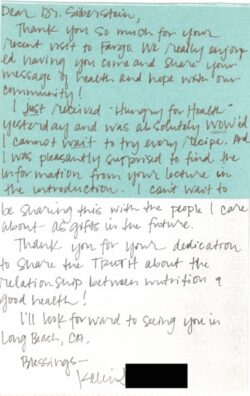 Dear Dr. Saberstein,
Thank you so much for your
recent visit to Fargo. We really enjoy-
ed having you come and share your
message of health and hope with our
community!
I just received "Hungry for Health"
yesterday and was absolutely WOW'd
I cannot wait to try every recipe. And
I was pleasantly surprised to find the
information from your lecture in
the introduction. I can't wait to
be sharing this with the people I care
about as gifts in the future.
Thank you for your dedication
to share the TRUTH about the
relationship between nutrition &
good health!
I'll look forward to seeing you in
Long Beach, CA.
Blessings—